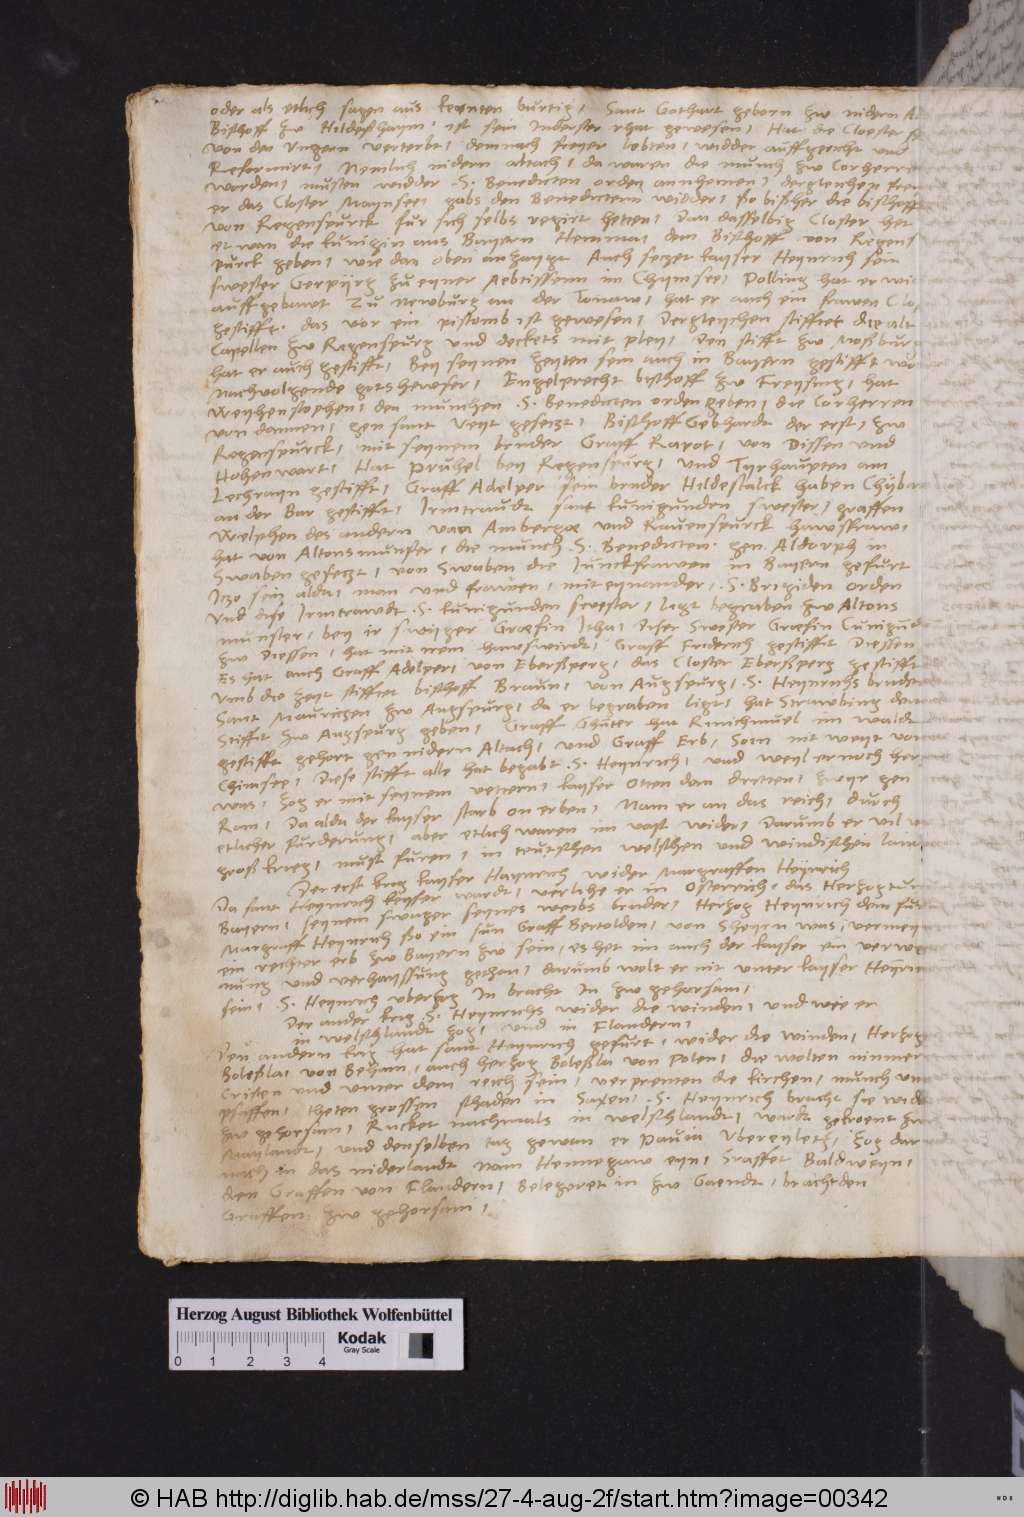 oder als etlich sagen aus kernten burtig / Sant Gothart geborn zw nidern
Bisthoff zw Hildesshaym / ist sein Inderster rhat gewesen / Hat die Cloester
von den Ungern verterbt / demnach freyer lebten / widder auffgericht und
Reformirt / Nemlich nidern altach / da waren die munch zw Corherren
worden / musten widder .S. Benedicten orden annhemen / dergleichen
er das Closter Maynsee / gabs den Benedictern widder / so bisher die bisthoff
von Regenspurck fur sich selbs regirt hetten / Dan dasselbig Closter het
etwan die kunigin aus Bayern Hemma / dem Bisthoff von Regens
purck geben / wie dan oben anzaygt Auch setzet kayser Heynrich sein
swester Gerpyrg zu eyner Aebtissenn in Chymsee / Polling hat er wid
auffgebawt Zu Newburg an der Tonaw / hat er auch ein frawen Clo
gestifft. das vor ein pistomb ist gewesen / Dergleychen stifftet die alt
Capellen zw Regenspurg und deckets mit pley / Den stifft zw Mossburg
hat er auch gestifft / Bey seynen zeyten sein auch in Bayern gestifft wor
nachvolgende gotshewser / Engelprecht bisthoff zw Freysing / hat
Weyhenstephen / den munchen .S. Benedicten orden geben / die Corherren
von dannen / gen sant Veyt gesetzt / Bisthoff Gebhardt der erst / zw
Regenspurck / mit seynem bruder Graff Rapot / von Dissen und
Hohenwart / Hat Pruhel bey Regenspurg / und Tyrhaupten am
Lechrayn gestifft / Graff Adelper sein bruder Hildestalck haben Chyba
an der Bar gestifft / Irmtraudt sant kunigunden swester / graffen
Welphen des andern von Amberge und Rauenspurck hawsfraw /
hat von Altonsmunster / die munch .S. Benedicten. gen Aldorph in
Swaben gesetzt / von Swaben die Junckfrawen in Bayern gefurt
Itzo sein alda / man und frawen / mit eynander / .S. Brigiden orden
Und dise Irmtrawdt .S. kunigunden swester / ligt begraben zw Altons
munster / bey ir swyger Grefin Itha / Diser Swester Grefin Cunigund
zw Diessen / hat mit irem hawswirdt / Graff Friderich gestifft Diessen
Es hat auch Graff Adelper / von Ebersperg / das Closter Ebersperg gestifft
Umb die zeyt stifftet bisthoff Braun / von Augspurg / .S. Heynrichs bruder
Sant Mauritzen zw Augspurg / da er begraben ligt / hat Strawbing dem
Stifft zw Augspurg geben / Graff Gunter hat Rinichnuel im waldt
gestifft gehort gen nidern Altach / und Graff Erb / Soen nit weyt von
Chimsee / Diese stifft alle hat begabt .S. Heynrich / und weyl er noch her
was / zog er mit seynem vettern / kayser Otten dem dritten / zwyr gen
Ram / Da alda der kayser starb on erben / Nam er an das reich / durch
etlicher furderung / aber etlich waren im vast wider / Darumb er vil
gross krieg / must furen / in teutschen welschen und windischen
Der erst krig kayser Haynrich wider Margraffen Heynrich
Da sant Heynrich keyser wardt / verlihe er in Osterrich / das Herzogtum
Bayern / seynem swager seynes weibs bruder / Herzog Heynrich dem
Margraff Heynrich so ein sun Graff Bertolden / von Sheyrn was / vermey
ein rechter erb zw Bayern zw sein / es het im auch der kayser ein
nung und verhayssung gethan / darumb wolt er nit unter kayser Heynrich
sein / .S. Heynrich uberzog In bracht In zw gehorsam /
Der ander krig .S. Heynrichs wider die winden / und wie er
in welschlandt zog / und in Flandern /
Den andern krig hat sant Heynrich gefurt / wider die winden / Herzog
Bolessla / von Beham / auch herzog Bolessla von Polen / die wolten nimmer
Cristen und unter dem reich sein / verprenten die kirchen / munch und
pfaffen / theten grossen schaden in Saxen / .S. Heynrich bracht sie wid
zw gehorsam / Rucket nachmals in welschlandt / wardt gekroent zw
Maylandt / und denselben tag gewan er Pavia Ubereyletz / Zog dar
nach in das niderlandt nam Hennegaw eyn / straffet Baldweyn /
den Graffen von Flandern / Belegeret in zw Gaendt / bracht den
Graffen zw gehorsam /
Herzog August Bibliothek Wolfenbüttel
Kodak
Gray Scale
0 1 2 3 4
© HAB http://diglib.hab.de/mss/27-4-aug-2f/start.htm?image=00342